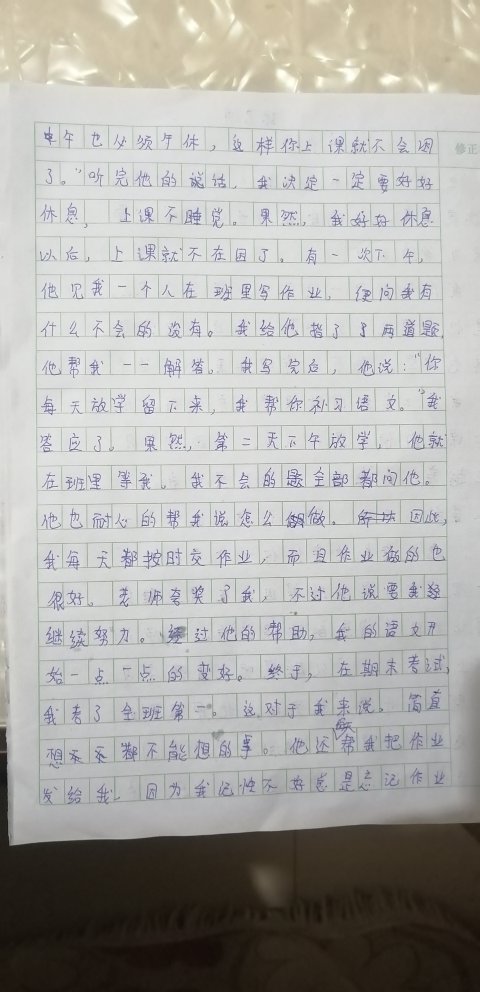 中午也必须午休，这样你上课就不会困
修正
了。”听完他的说话，我决定一定要好好
休息，上课不睡觉。果然，我好好休息
以后，上课就不在困了。有一次下午，
他见我一个人在班里写作业，便问我有
什么不会的没有。我给他指了了两道题，
他帮我一一解答。我写完后，他说：“你
每天放学留下来，我帮你补习语文。”我
答应了。果然，第二天下午放学，他就
在班里等我。我不会的题全部都问他。
他也耐心的帮我说怎么做。因此，
我每天都按时交作业，而且作业做的也
很好。老师夸奖了我，不过他说要我
继续努力。经过他的帮助，我的语文开
始一点一点的变好。终于，在期末考试，
我考了全班第一。这对于我来说。简直
想都不能想的事。他还帮我把作业
发给我、因为我记性不好总是忘记作业